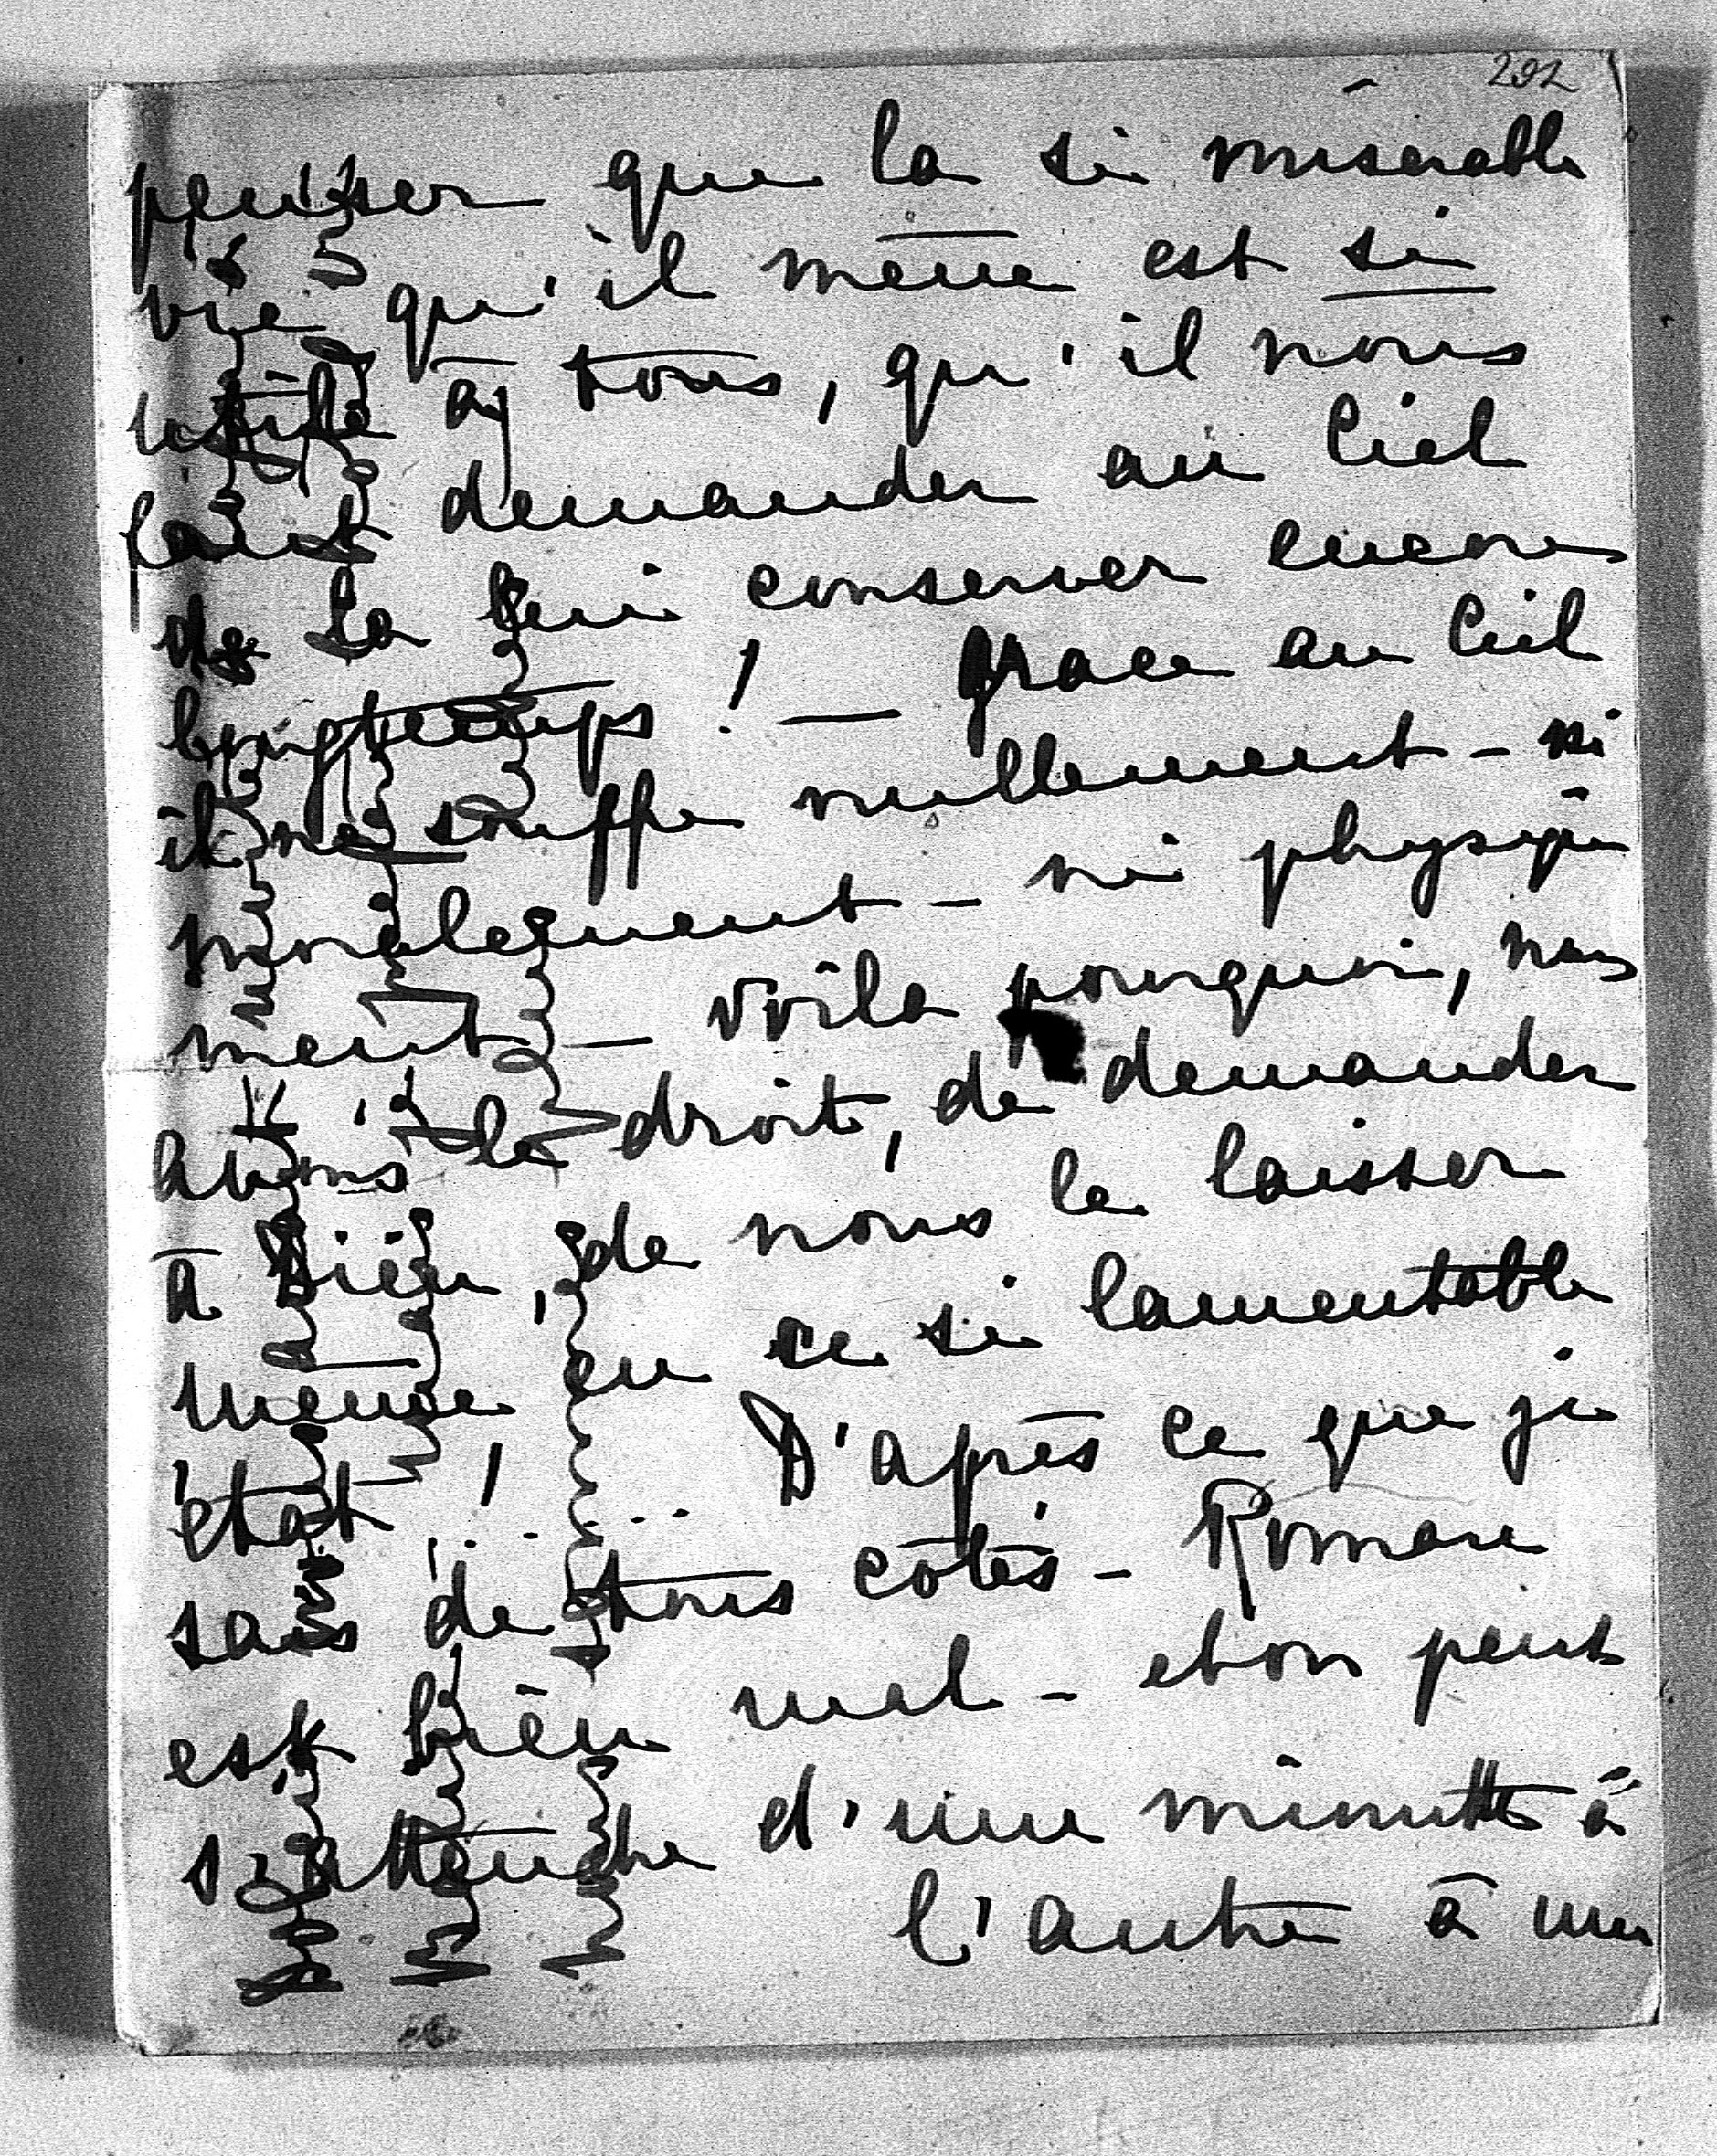 292
penser que la si misérable
vie qu'il mène est si
utile à tous, qu'il nous
faut demander au Ciel
de la lui conserver encore
longtemps ! — grace au Ciel
il ne souffre nullement - ni
moralement - ni physique
ment — voilà pourquoi, nous
avons le droit, de demander
à Dieu, de nous le laisser
meme, en ce si lamentable
état ! .... D'après ce que je
sais de tous côtés - Roman
est bien mal - et on peut
s'attendre d'une minute à
l'autre à une